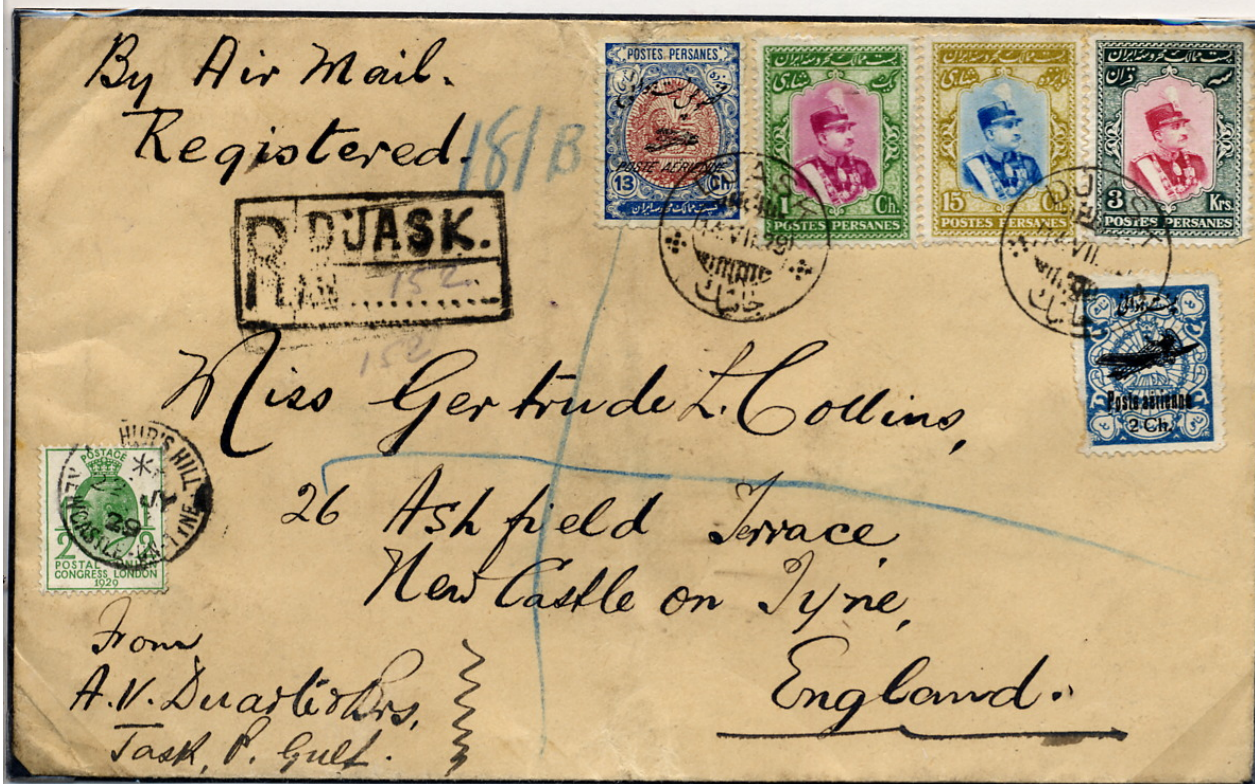 By Air Mail.
Registered.
181/B
R DJASK.
152
152
POSTES PERSANES
POSTE AERIENNE
13 Ch
1 Ch.
POSTES PERSANES
15 Ch.
POSTES PERSANES
3 Krs.
POSTES PERSANES
DJASK
DJASK
Poste aérienne
2 Ch.
Miss Gertrude L. Collins,
26 Ashfield Terrace
New Castle on Tyne,
England.
POSTAGE
HILL
NEWCASTLE-ON-TYNE
JY
29
POSTAL
CONGRESS LONDON
1929
From
A. V. Duarte & Bros,
Jask, P. Gulf.